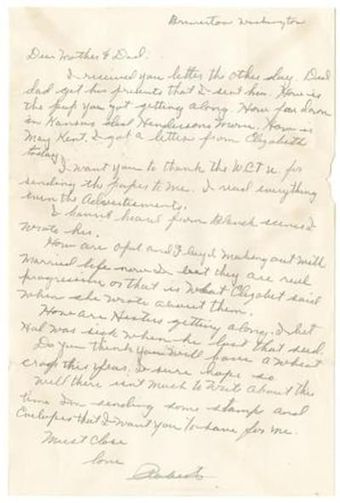 Bremerton Washington
Dear Mother & Dad:
I received you letter the other day. Did
dad get his presents that I sent him. How is
the pup you got getting along. How far down
in Kansas did Hendersons move. How is
May Kent. I got a letter from Elizabeth
today
I want you to thank the W.C.T.U. for
sending th papes to me. I read everything
even the Advertisements.
I havent heard from since I
wrote her.
How are Opal and Floyd making out with
married life now I'm bet they are real
progressive or that is what Elizabet said
when she wrote about them.
How are getting along. I bet
Hal was sick when he lost that seed.
Do you think you will have a wheat
crop this year, I sure hope so
Well there isn't much to write about this
time I'm sending some stamp and
Envlopes that I want you to save for me.
Must Close
Love